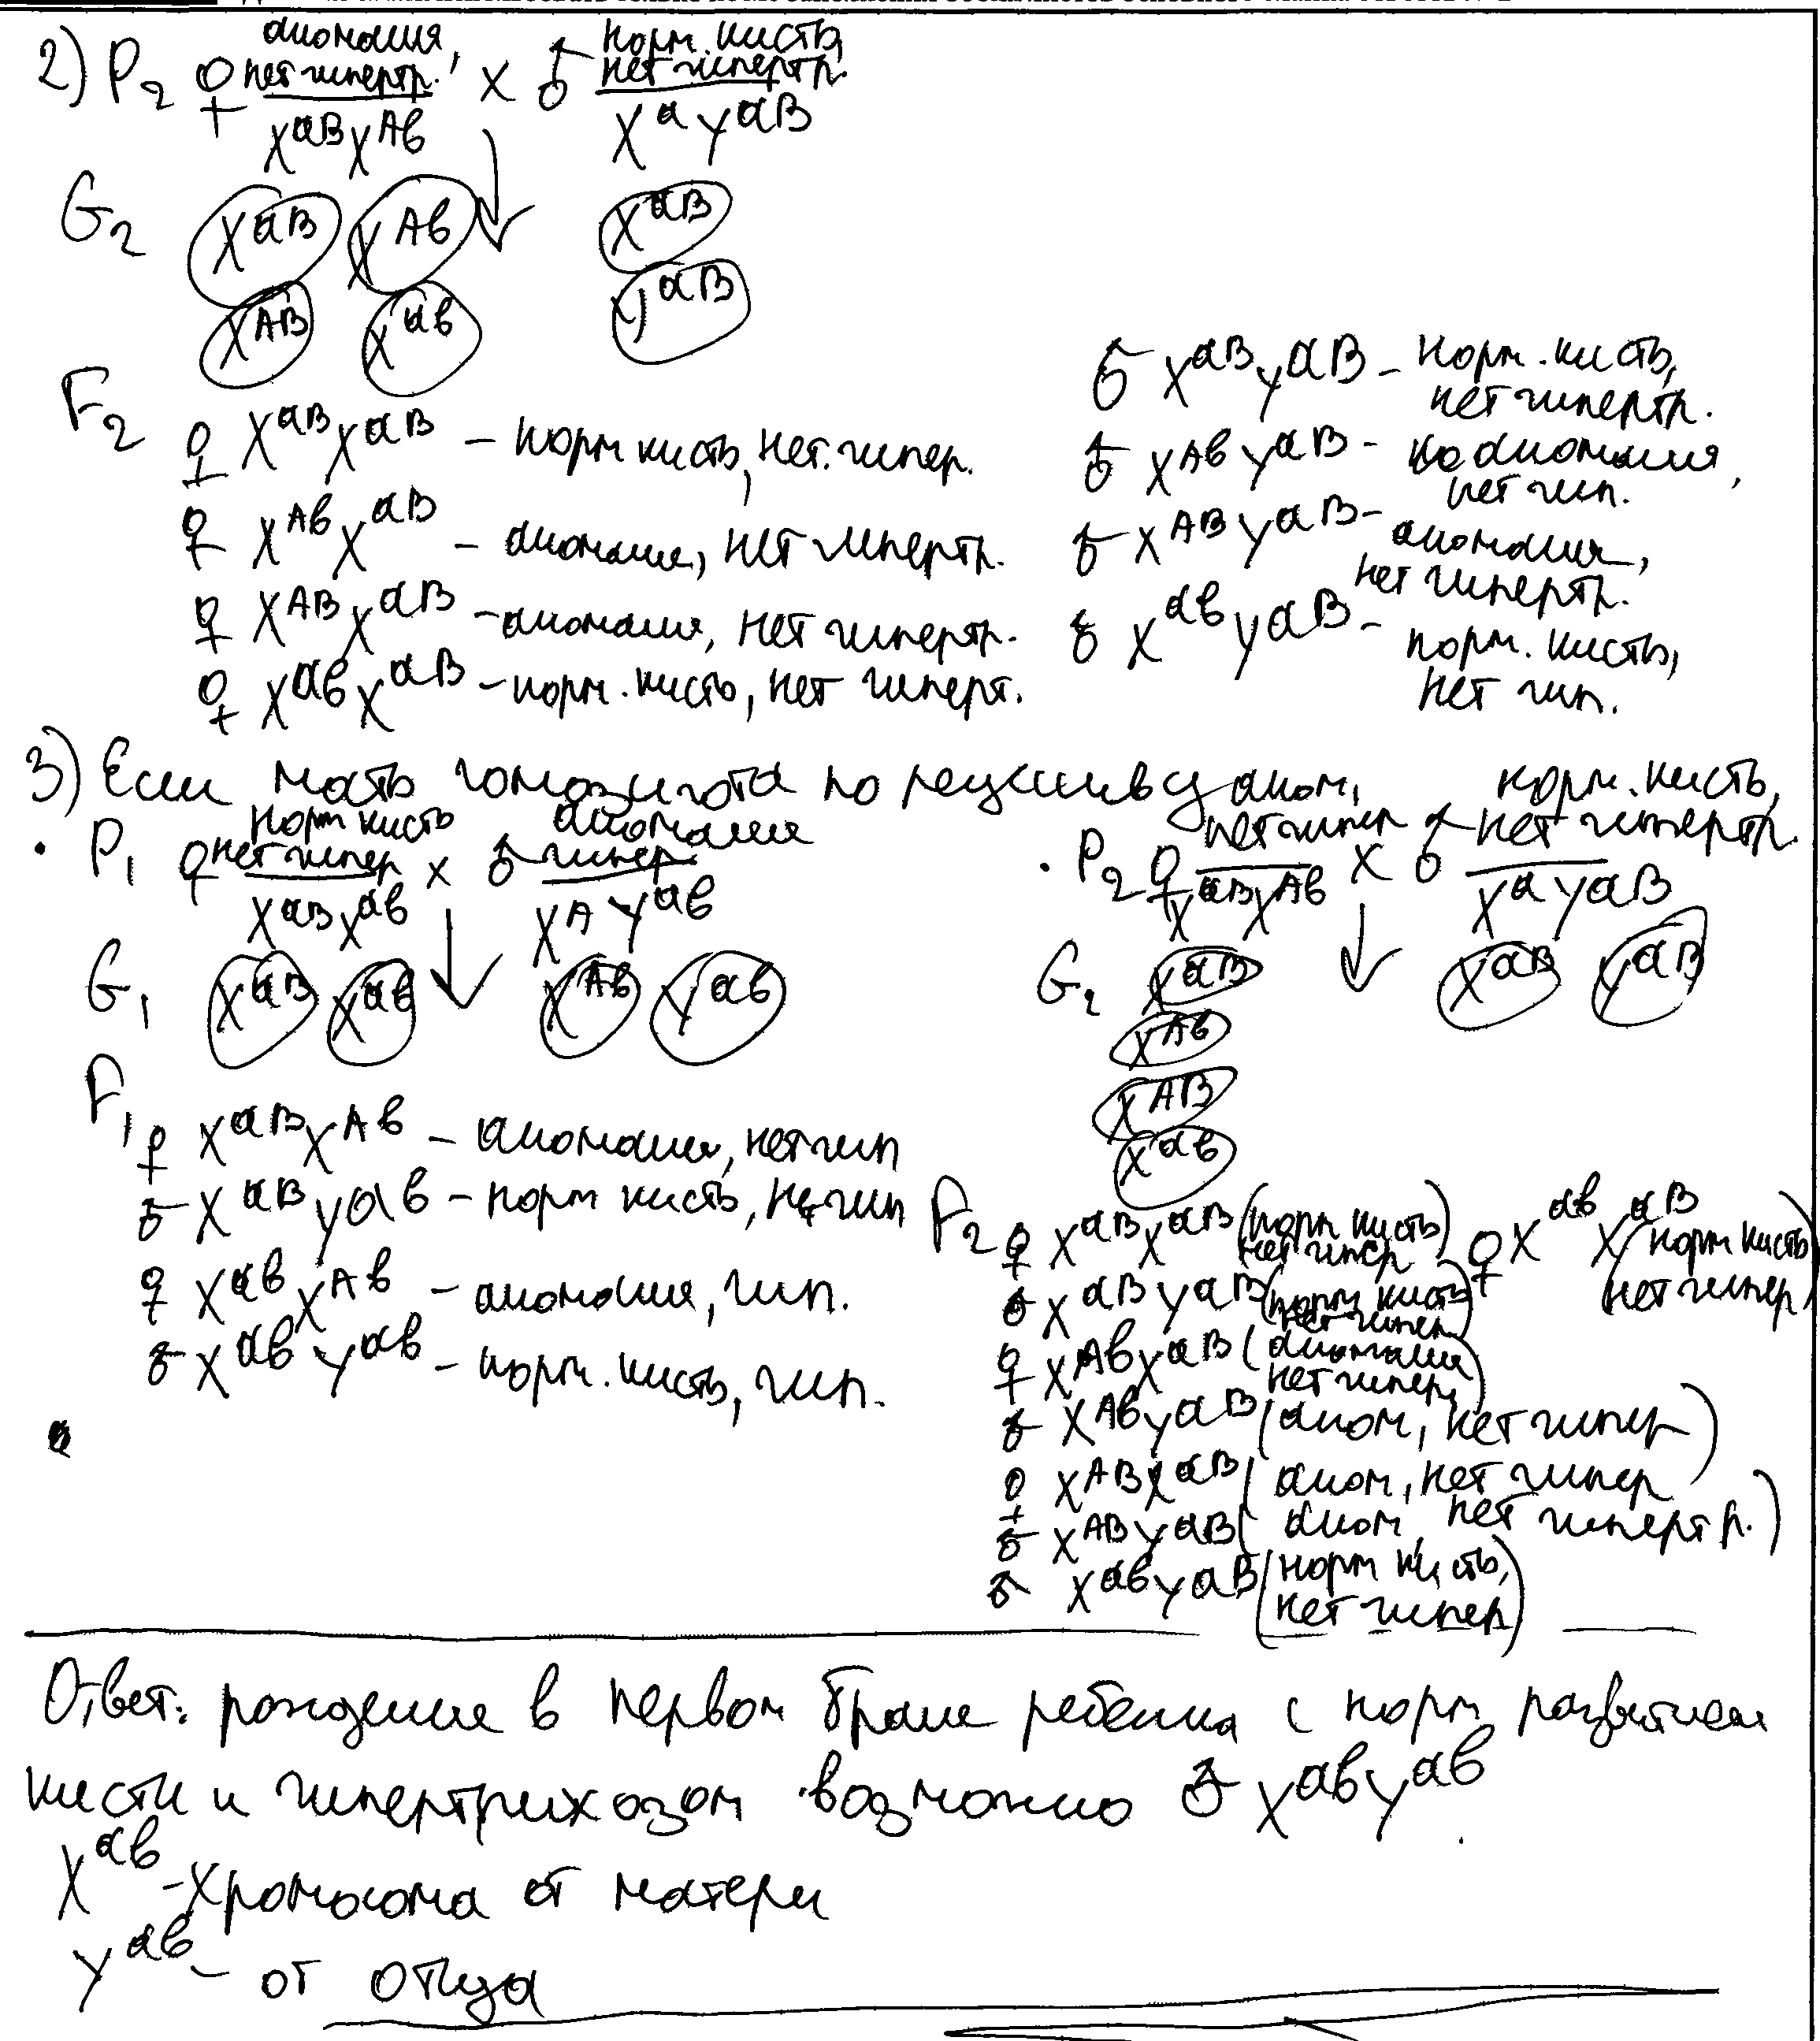 2) P₂ ♀ аномалия, нет гипертр. x ♂ норм. кисть, нет гипертр.
XᵃᴮXᴬᵇ XᵃYᵃᴮ
G₂ Xᵃᴮ Xᴬᵇ Xᵃᴮ
Xᴬᴮ Xᵃᵇ Yᵃᴮ
F₂
♀ XᵃᴮXᵃᴮ – норм кисть, нет. гипер.
♀ XᴬᵇXᵃᴮ – аномалия, нет гипертр.
♀ XᴬᴮXᵃᴮ – аномалия, нет гипертр.
♀ XᵃᵇXᵃᴮ – норм. кисть, нет гиперт.
♂ XᵃᴮYᵃᴮ – норм. кисть,
нет гипертр.
♂ XᴬᵇYᵃᴮ – аномалия,
нет гип.
♂ XᴬᴮYᵃᴮ – аномалия,
нет гипертр.
♂ XᵃᵇYᵃᴮ – норм. кисть,
нет гип.
3) Если мать гомозигота по рецессиву
· P₁ ♀ норм кисть нет гипер x ♂ аномалия гипер.
XᵃᴮXᵃᵇ XᴬYᵃᵇ
G₁ Xᵃᴮ Xᵃᵇ Xᴬᵇ Yᵃᵇ
F₁
♀ XᵃᴮXᴬᵇ – аномалия, нет гип
♂ XᵃᴮYᵃᵇ – норм кисть, нет гип
♀ XᵃᵇXᴬᵇ – аномалия, гип.
♂ XᵃᵇYᵃᵇ – норм. кисть, гип.
· P₂ ♀ аном, нет гипер x ♂ норм. кисть, нет гипертр.
XᵃᴮXᴬᵇ XᵃYᵃᴮ
G₂ Xᵃᴮ Xᵃᴮ Yᵃᴮ
Xᴬᵇ
Xᴬᴮ
Xᵃᵇ
F₂ ♀ XᵃᴮXᵃᴮ (норм кисть нет гипер) ♀ XᵃᵇXᵃᴮ (норм кисть нет гипер)
♂ XᵃᴮYᵃᴮ (норм кисть нет гипер)
♀ XᴬᵇXᵃᴮ (аномалия нет гипер)
♂ XᴬᵇYᵃᴮ (аном, нет гипер)
♀ XᴬᴮXᵃᴮ (аном, нет гипер
♂ XᴬᴮYᵃᴮ (аном, нет гипертр.)
♂ XᵃᵇYᵃᴮ (норм кисть, нет гипер)
Ответ: рождение в первом браке ребенка с норм развитием
кисти и гипертрихозом возможно ♂ XᵃᵇYᵃᵇ.
Xᵃᵇ – хромосома от матери
Yᵃᵇ – от отца